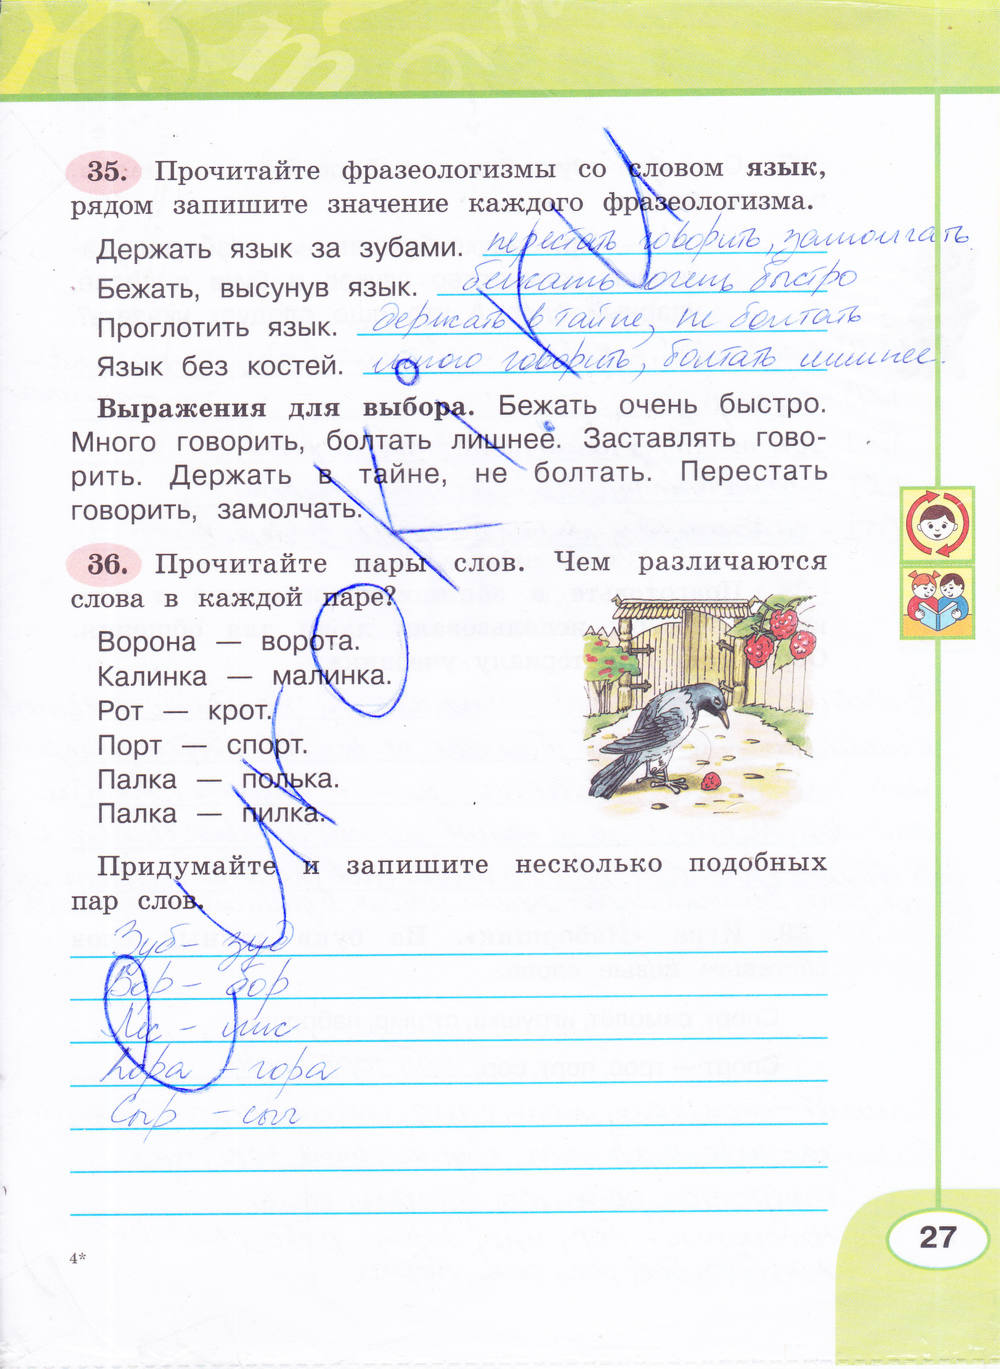 35. Прочитайте фразеологизмы со словом язык,
рядом запишите значение каждого фразеологизма.
Держать язык за зубами. перестать говорить, замолчать.
Бежать, высунув язык. бежать очень быстро
Проглотить язык. держать в тайне, не болтать
Язык без костей. много говорить, болтать лишнее.
Выражения для выбора. Бежать очень быстро.
Много говорить, болтать лишнее. Заставлять гово-
рить. Держать в тайне, не болтать. Перестать
говорить, замолчать.
36. Прочитайте пары слов. Чем различаются
слова в каждой паре?
Ворона — ворота.
Калинка — малинка.
Рот — крот.
Порт — спорт.
Палка — полька.
Палка — пилка.
Придумайте и запишите несколько подобных
пар слов.
Зуб – зуд
Вор – бор
Лес – лис
Кора – гора
Сыр – сыч
4*
27